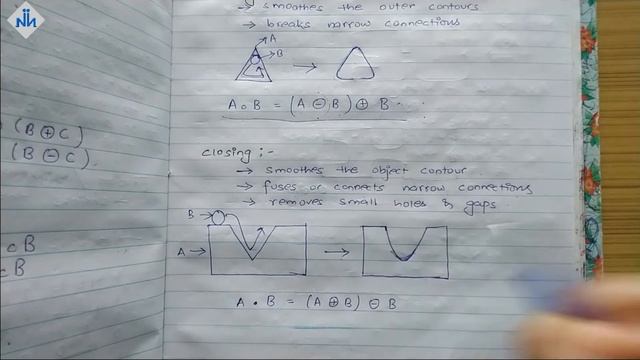 → smoothes the outer contours
→ breaks narrow connections
A
B
A ∘ B = (A ⊖ B) ⊕ B
(B ⊕ C)
(B ⊖ C)
closing :-
→ smoothes the object contour
→ fuses or connects narrow connections
→ removes small holes & gaps
B →
A →
⊂ B
⊂ B
A • B = (A ⊕ B) ⊖ B